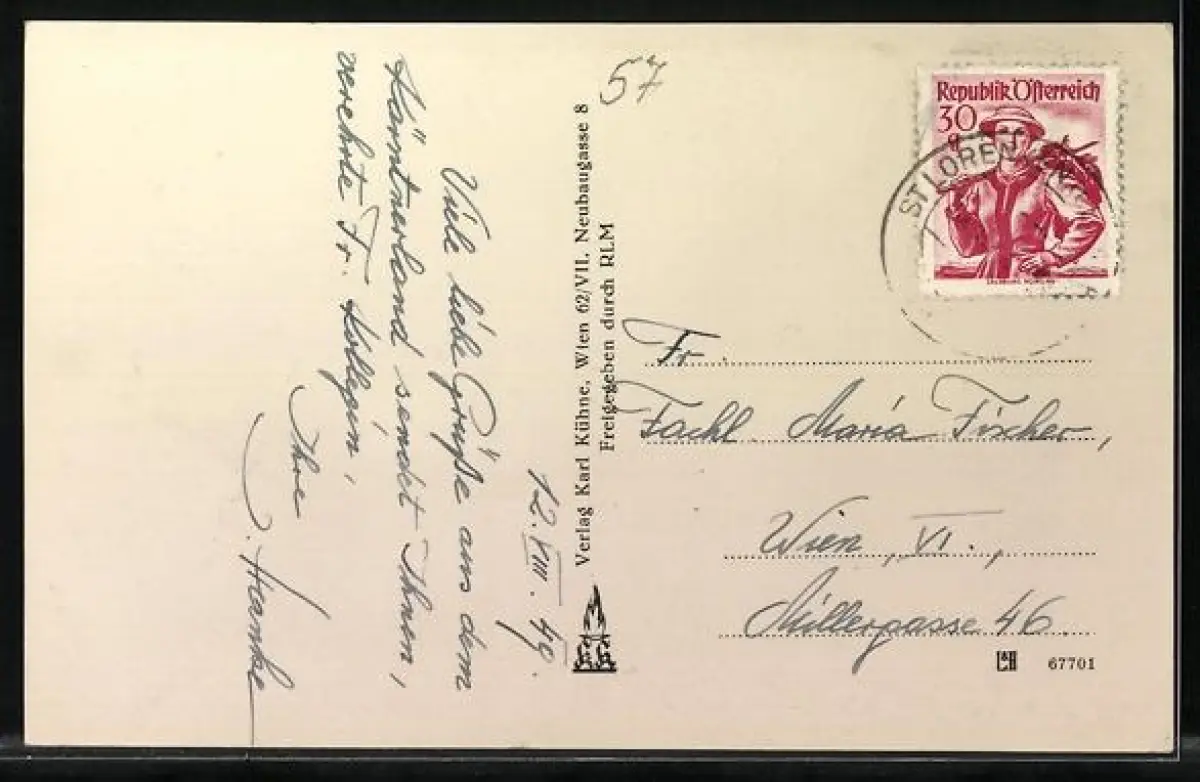 12. VIII. 49.
Viele liebe Grüße aus dem
Kärntnerland sendet Ihnen,
verehrte Fr. Kollegin,
Ihre
J. Hanke
57
Verlag Karl Kühne, Wien 62/VII, Neubaugasse 8
Freigegeben durch RLM
Republik Österreich
30
g
ST LOREN
Fr.
Fachl. Maria Fischer,
Wien, VI.,
Millergasse 46.
67701